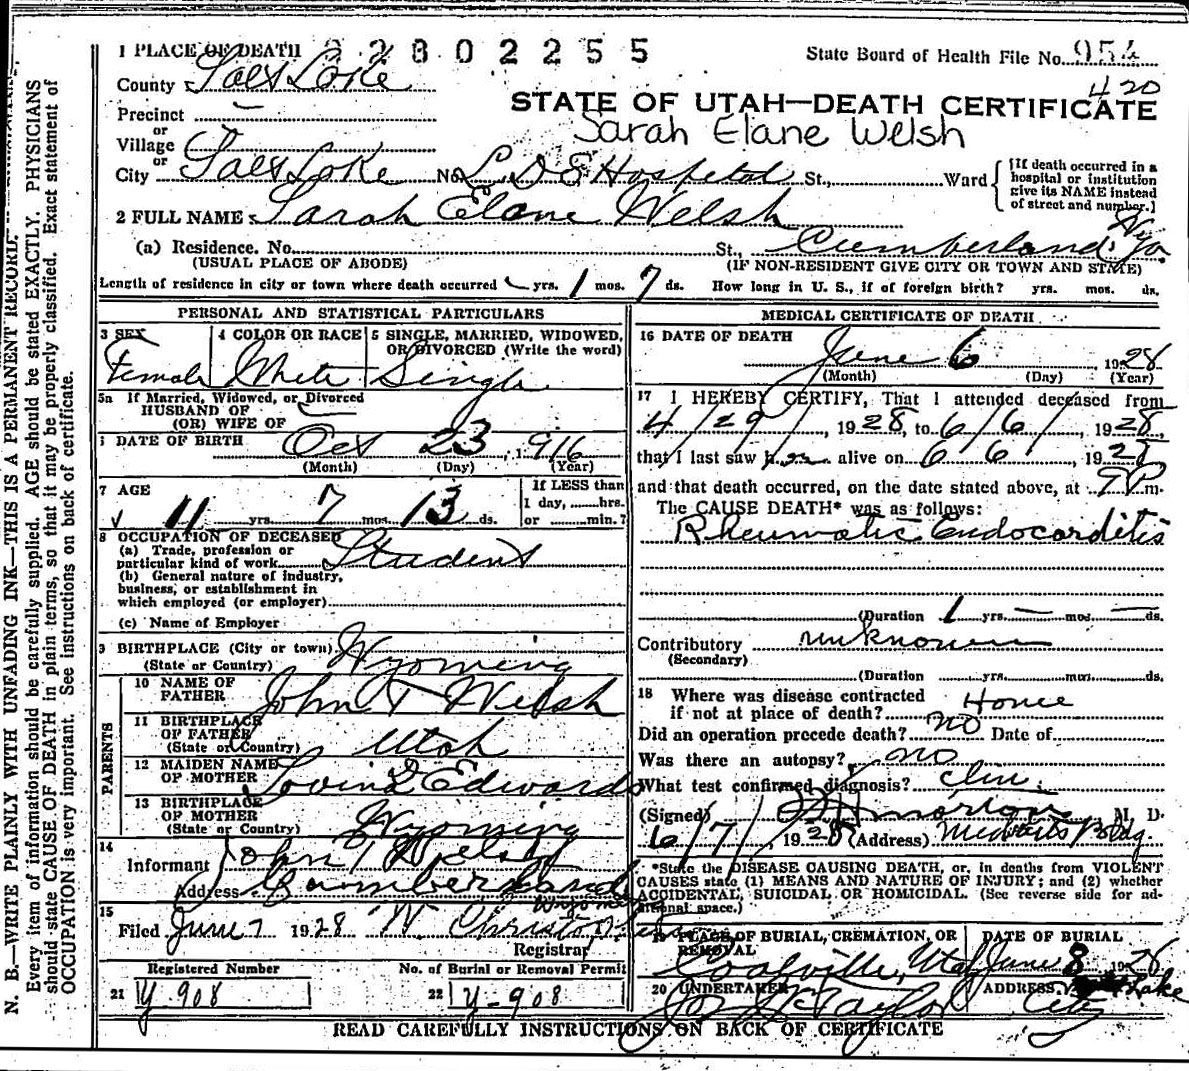 1 PLACE OF DEATH 2802255 State Board of Health File No. 954
County Salt Lake 420
STATE OF UTAH—DEATH CERTIFICATE
Precinct
or
Sarah Elane Welsh
Village
or
City Salt Lake No. L D S Hospital St., Ward
{If death occurred in a
hospital or institution
give its NAME instead
of street and number.}
2 FULL NAME Sarah Elane Welsh
(a) Residence. No. St., Cumberland Wyo.
(USUAL PLACE OF ABODE) (IF NON-RESIDENT GIVE CITY OR TOWN AND STATE)
Length of residence in city or town where death occurred — yrs. 1 mos. 7 ds. How long in U. S., if of foreign birth? yrs. mos. ds.
PERSONAL AND STATISTICAL PARTICULARS
3 SEX 4 COLOR OR RACE 5 SINGLE, MARRIED, WIDOWED,
OR DIVORCED (Write the word)
Female White Single
5a If Married, Widowed, or Divorced
HUSBAND OF
(OR) WIFE OF
6 DATE OF BIRTH Oct 23, 1916
(Month) (Day) (Year)
7 AGE If LESS than
1 day, hrs.
11 yrs. 7 mos. 13 ds. or min.?
8 OCCUPATION OF DECEASED
(a) Trade, profession or
particular kind of work Student
(b) General nature of industry,
business, or establishment in
which employed (or employer)
(c) Name of Employer
9 BIRTHPLACE (City or town)
(State or Country) Wyoming
PARENTS
10 NAME OF
FATHER John T Welsh
11 BIRTHPLACE
OF FATHER
(State or Country) Utah
12 MAIDEN NAME
OF MOTHER Lovina D Edwards
13 BIRTHPLACE
OF MOTHER
(State or Country) Wyoming
14
Informant John T Welsh
Address Cumberland
Wyoming
15
Filed June 7 1928 W Christo
Registrar
Registered Number No. of Burial or Removal Permit
21 Y-908 22 Y-908
MEDICAL CERTIFICATE OF DEATH
16 DATE OF DEATH
June 6, 1928
(Month) (Day) (Year)
17 I HEREBY CERTIFY, That I attended deceased from
4/29/, 1928, to 6/6/, 1928,
that I last saw her alive on 6 6, 1928
and that death occurred, on the date stated above, at 7 P m.
The CAUSE DEATH* was as follows:
Rheumatic Endocarditis
(Duration 1 yrs. — mos. — ds.
Contributory unknown
(Secondary)
(Duration yrs. mos. ds.
18 Where was disease contracted
if not at place of death? Home
Did an operation precede death? no Date of
Was there an autopsy? no
What test confirmed diagnosis? clin.
(Signed) M. D.
6/7/, 1928 (Address) Bldg.
*State the DISEASE CAUSING DEATH, or, in deaths from VIOLENT
CAUSES state (1) MEANS AND NATURE OF INJURY; and (2) whether
ACCIDENTAL, SUICIDAL OR HOMICIDAL. (See reverse side for ad-
ditional space.)
19 PLACE OF BURIAL, CREMATION, OR
REMOVAL DATE OF BURIAL
Coalville, Utah June 8 1928
20 UNDERTAKER ADDRESS Lake
Taylor City
READ CAREFULLY INSTRUCTIONS ON BACK OF CERTIFICATE
N. B.—WRITE PLAINLY WITH UNFADING INK—THIS IS A PERMANENT RECORD.
Every item of information should be carefully supplied. AGE should be stated EXACTLY. PHYSICIANS
should state CAUSE OF DEATH in plain terms, so that it may be properly classified. Exact statement of
OCCUPATION is very important. See instructions on back of certificate.